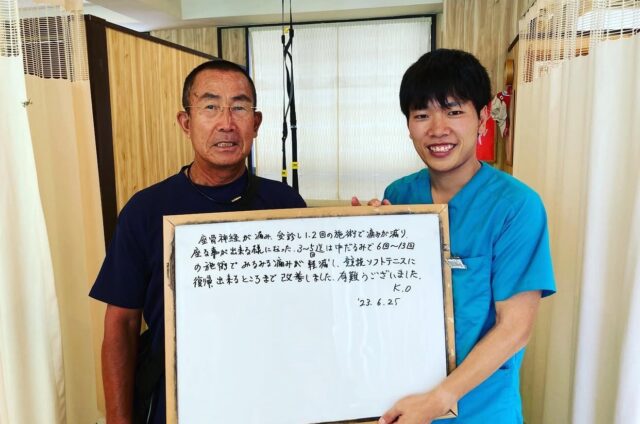 座骨神経が痛み、受診し1、2回の施術で痛みが減り、
座る事が出来る様になった。3〜5回は中だるみで6回〜13回
の施術でみるみる痛みが軽減し、競技ソフトテニスに
復帰出来るところまで改善しました。有難うございました。
K.O
'23.6.25